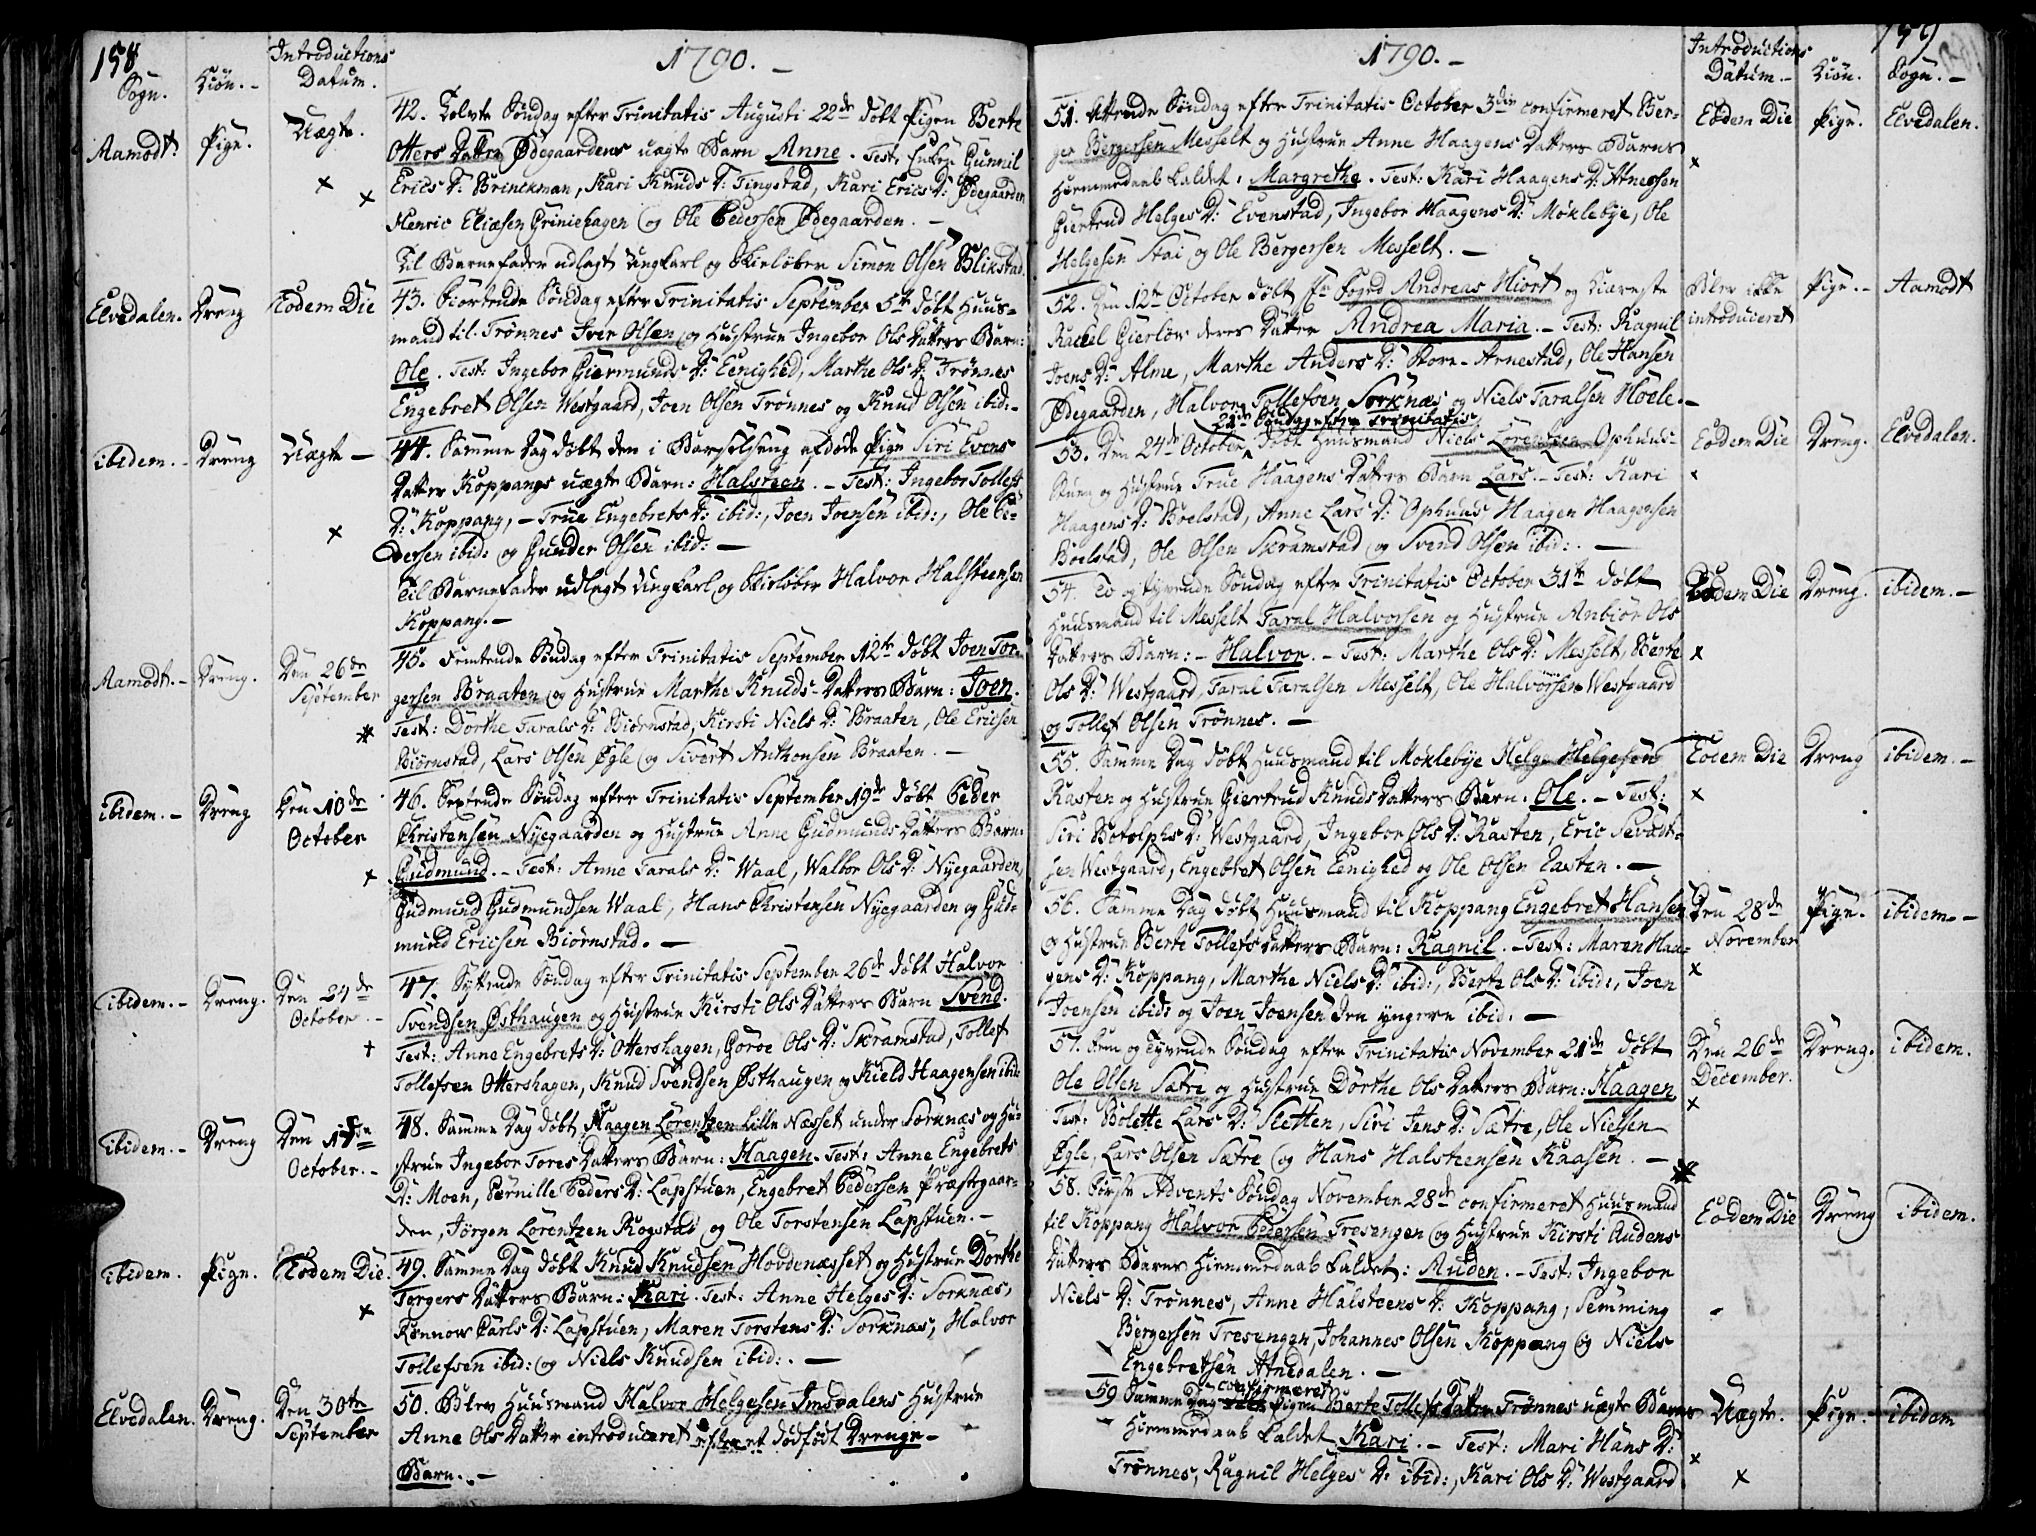 158
1790.
Sogn. Kiön. Introductions Datum.
Aamodt. Pige. Uægte.
42. Tolvte Söndag efter Trinitatis Augusti 22de döbt Pigen Berte
Otters Datter Ödegaardens uægte Barn Anne. Test: Enken Gunnil
Erics D: Brinckman, Kari Knuds D: Tingstad, Kari Erics D: Ödegaarden
Henric Eliæsen Griniehagen og Ole Pedersen Ödegaarden.
Til Barnefader udlagt Ungkarl og Skielöber Simon Olsen Blikstad.
Elvedalen. Dreng Eodem Die
43. Fiortende Söndag efter Trinitatis September 5te döbt Huus-
mand til Trönnes Iver Olsen og Hustrue Ingebor Ols Datters Barn:
Ole. Test: Ingebor Giermunds D: Eenighed, Marthe Ols D: Trönnes
Engebret Olsen Westgaard, Joen Olsen Trönnes og Knud Olsen ibid:
ibidem. Dreng Uægte
44. Samme Dag döbt den i Barselseng afdöde Pige Siri Evens
Datter Koppangs uægte Barn: Halsteen. Test: Ingebor Tollefs
D: Koppang, True Engebrets D: ibid:, Joen Joensen ibid:, Ole Pe-
dersen ibid: og Gunder Olsen ibid:
Til Barnefader udlagt Ungkarl og Skielöber Halvor Halsteensen
Koppang.
Aamodt. Dreng. Den 26de September
45. Femtende Söndag efter Trinitatis September 12te döbt Joen Tor-
gersen Braaten og Hustrue Marthe Knuds Datters Barn: Joen.
Test: Dorthe Tarals D: Biörnstad, Kirsti Niels D: Braaten, Ole Ericsen
Biörnstad, Lars Olsen Ögle og Sivert Anthonsen Braaten.
ibidem. Dreng Den 10de October
46. Sextende Söndag efter Trinitatis September 19de döbt Peder
Christensen Nyegaarden og Hustrue Anne Gudmunds Datters Barn:
Gudmund. Test: Anne Tarals D: Waal, Walbor Ols D: Nyegaarden,
Gudmund Gudmundsen Waal, Hans Christensen Nyegaarden og Gud-
mund Ericsen Biörnstad.
ibidem. Dreng. Den 24de October
47. Syttende Söndag efter Trinitatis September 26de döbt Halvor
Svendsen Östhaugen og Hustrue Kirsti Ols Datters Barn Svend.
Test: Anne Engebrets D: Ottershagen, Goroe Ols D: Skramstad, Tollef
Tollefsen Ottershagen, Knud Svendsen Östhaugen og Kield Haagensen ibid:
ibidem. Dreng Den October.
48. Samme Dag döbt Haagen Lorentzen Lille Næsset under Sorknæs og Hu-
strue Ingebor Tores Datters Barn: Haagen. Test: Anne Engebrets
D: Moen, Pernille Peders D: Lapstuen, Engebret Pedersen Præstegaar-
den, Jörgen Lorentzen Rogstad og Ole Torstensen Lapstuen.
ibidem. Pige. Eodem Die.
49. Samme Dag döbt Knud Knudsen Hovdenæsset og Hustrue Dorthe
Torgers Datters Barn: Kari. Test: Anne Helges D: Sorknæs,
Rönnow Carls D: Lapstuen, Maren Torstens D: Sorknæs, Halvor
Tollefsen ibid: og Niels Knudsen ibid:.
Elvedalen. Dreng. Den 30te September
50. Blev Huusmand Halvor Helgesen Imsdalens Hustrue
Anne Ols Datter introduceret efter et dödfödt Drenge-
Barn.
159
1790.
Introductions Datum. Kiön. Sogn.
51. Attende Söndag efter Trinitatis October 3die confirmeret Ber-
ger Bergersen Messelt og Hustrue Anne Haagens Datters Barns
Hiemmedaab kaldet: Margrethe. Test: Kari Haagens D: Atneosen
Giertrud Helges D: Evenstad, Ingebor Haagens D: Möklebye, Ole
Helgesen Stai og Ole Bergersen Messelt.
Eodem Die Pige. Elvedalen.
52. Den 12te October döbt Hr Fogd Andreas Hiort og Kiæreste
Rackel Gierlöv deres Datter Andrea Maria. Test: Ragnil
Joens D: Alme, Marthe Anders D: Store-Arnestad, Ole Hansen
Ödegaarden, Halvor Tollefsen Sorknæs og Niels Taralsen Hoele.
Blev ikke introduceret Pige. Aamodt
21de Söndag efter Trinitatis
53. Den 24de October döbt Huusmand Niels Lorentzen Ophuus-
Stuen og Hustrue True Haagens Datters Barn Lars. Test: Kari
Haagens D: Bolstad, Anne Lars D: Ophuus Haagen Haagensen
Bolstad, Ole Olsen Skramstad og Svend Olsen ibid:.
Eodem Die Dreng. Elvedalen.
54. To og tyvende Söndag efter Trinitatis October 31te döbt
Huusmand til Messelt Taral Halvorsen og Hustrue Anbiör Ols
Datters Barn: Halvor. Test: Marthe Ols D: Messelt, Berte
Ols D: Westgaard, Taral Taralsen Messelt, Ole Halvorsen Westgaard
og Tollef Olsen Trönnes.
Eodem Die Dreng. ibidem.
55. Samme Dag döbt Huusmand til Moklebye Helge Helgesen
Kasten og Hustrue Giertrud Knuds Datters Barn: Ole. Test:
Siri Botolphs D: Westgaard, Ingebor Ols D: Kasten, Eric Sevadt-
sen Westgaard, Engebret Olsen Eenighed og Ole Olsen Kasten.
Eodem Die Dreng ibidem.
56. Samme Dag döbt Huusmand til Koppang Engebret Hansen
og Hustrue Berte Tollefs Datters Barn: Ragnil. Test: Maren Haa-
gens D: Koppang, Marthe Niels D: ibid:, Berte Ols D: ibid:, Joen
Joensen ibid: og Joen Joensen den yngere ibid:
Den 28de November Pige. ibidem.
57. Fem og Tyvende Söndag efter Trinitatis November 21de döbt
Ole Olsen Sætre og Hustrue Dorthe Ols Datters Barn: Haagen
Test: Bolette Lars D: Sletten, Siri Jens D: Sætre, Ole Nielsen
Ögle, Lars Olsen Sætre og Hans Halsteensen Kaasen.
Den 26de December. Dreng. ibidem.
58. Förste Advents Söndag November 28de confirmeret Huusmand
til Koppang Halvor Pedersen Tresengen og Hustrue Kirsti Audens
Datters Barns Hiemmedaab kaldet: Auden. Test: Ingebor
Niels D: Trönnes, Anne Halsteens D: Koppang, Semming
Bergersen Tresengen, Johannes Olsen Koppang og Niels
Engebretsen Atnedalen.
Eodem Die Dreng ibidem.
59 Samme Dag confirmeret Pigen Berte Tollefs Datter Trönnes uægte Barns
Hiemmedaab kaldet Kari. Test: Mari Hans D:
Trönnes, Ragnil Helges D: ibid:, Kari Ols D: Westgaard
Uægte. Pige. ibidem